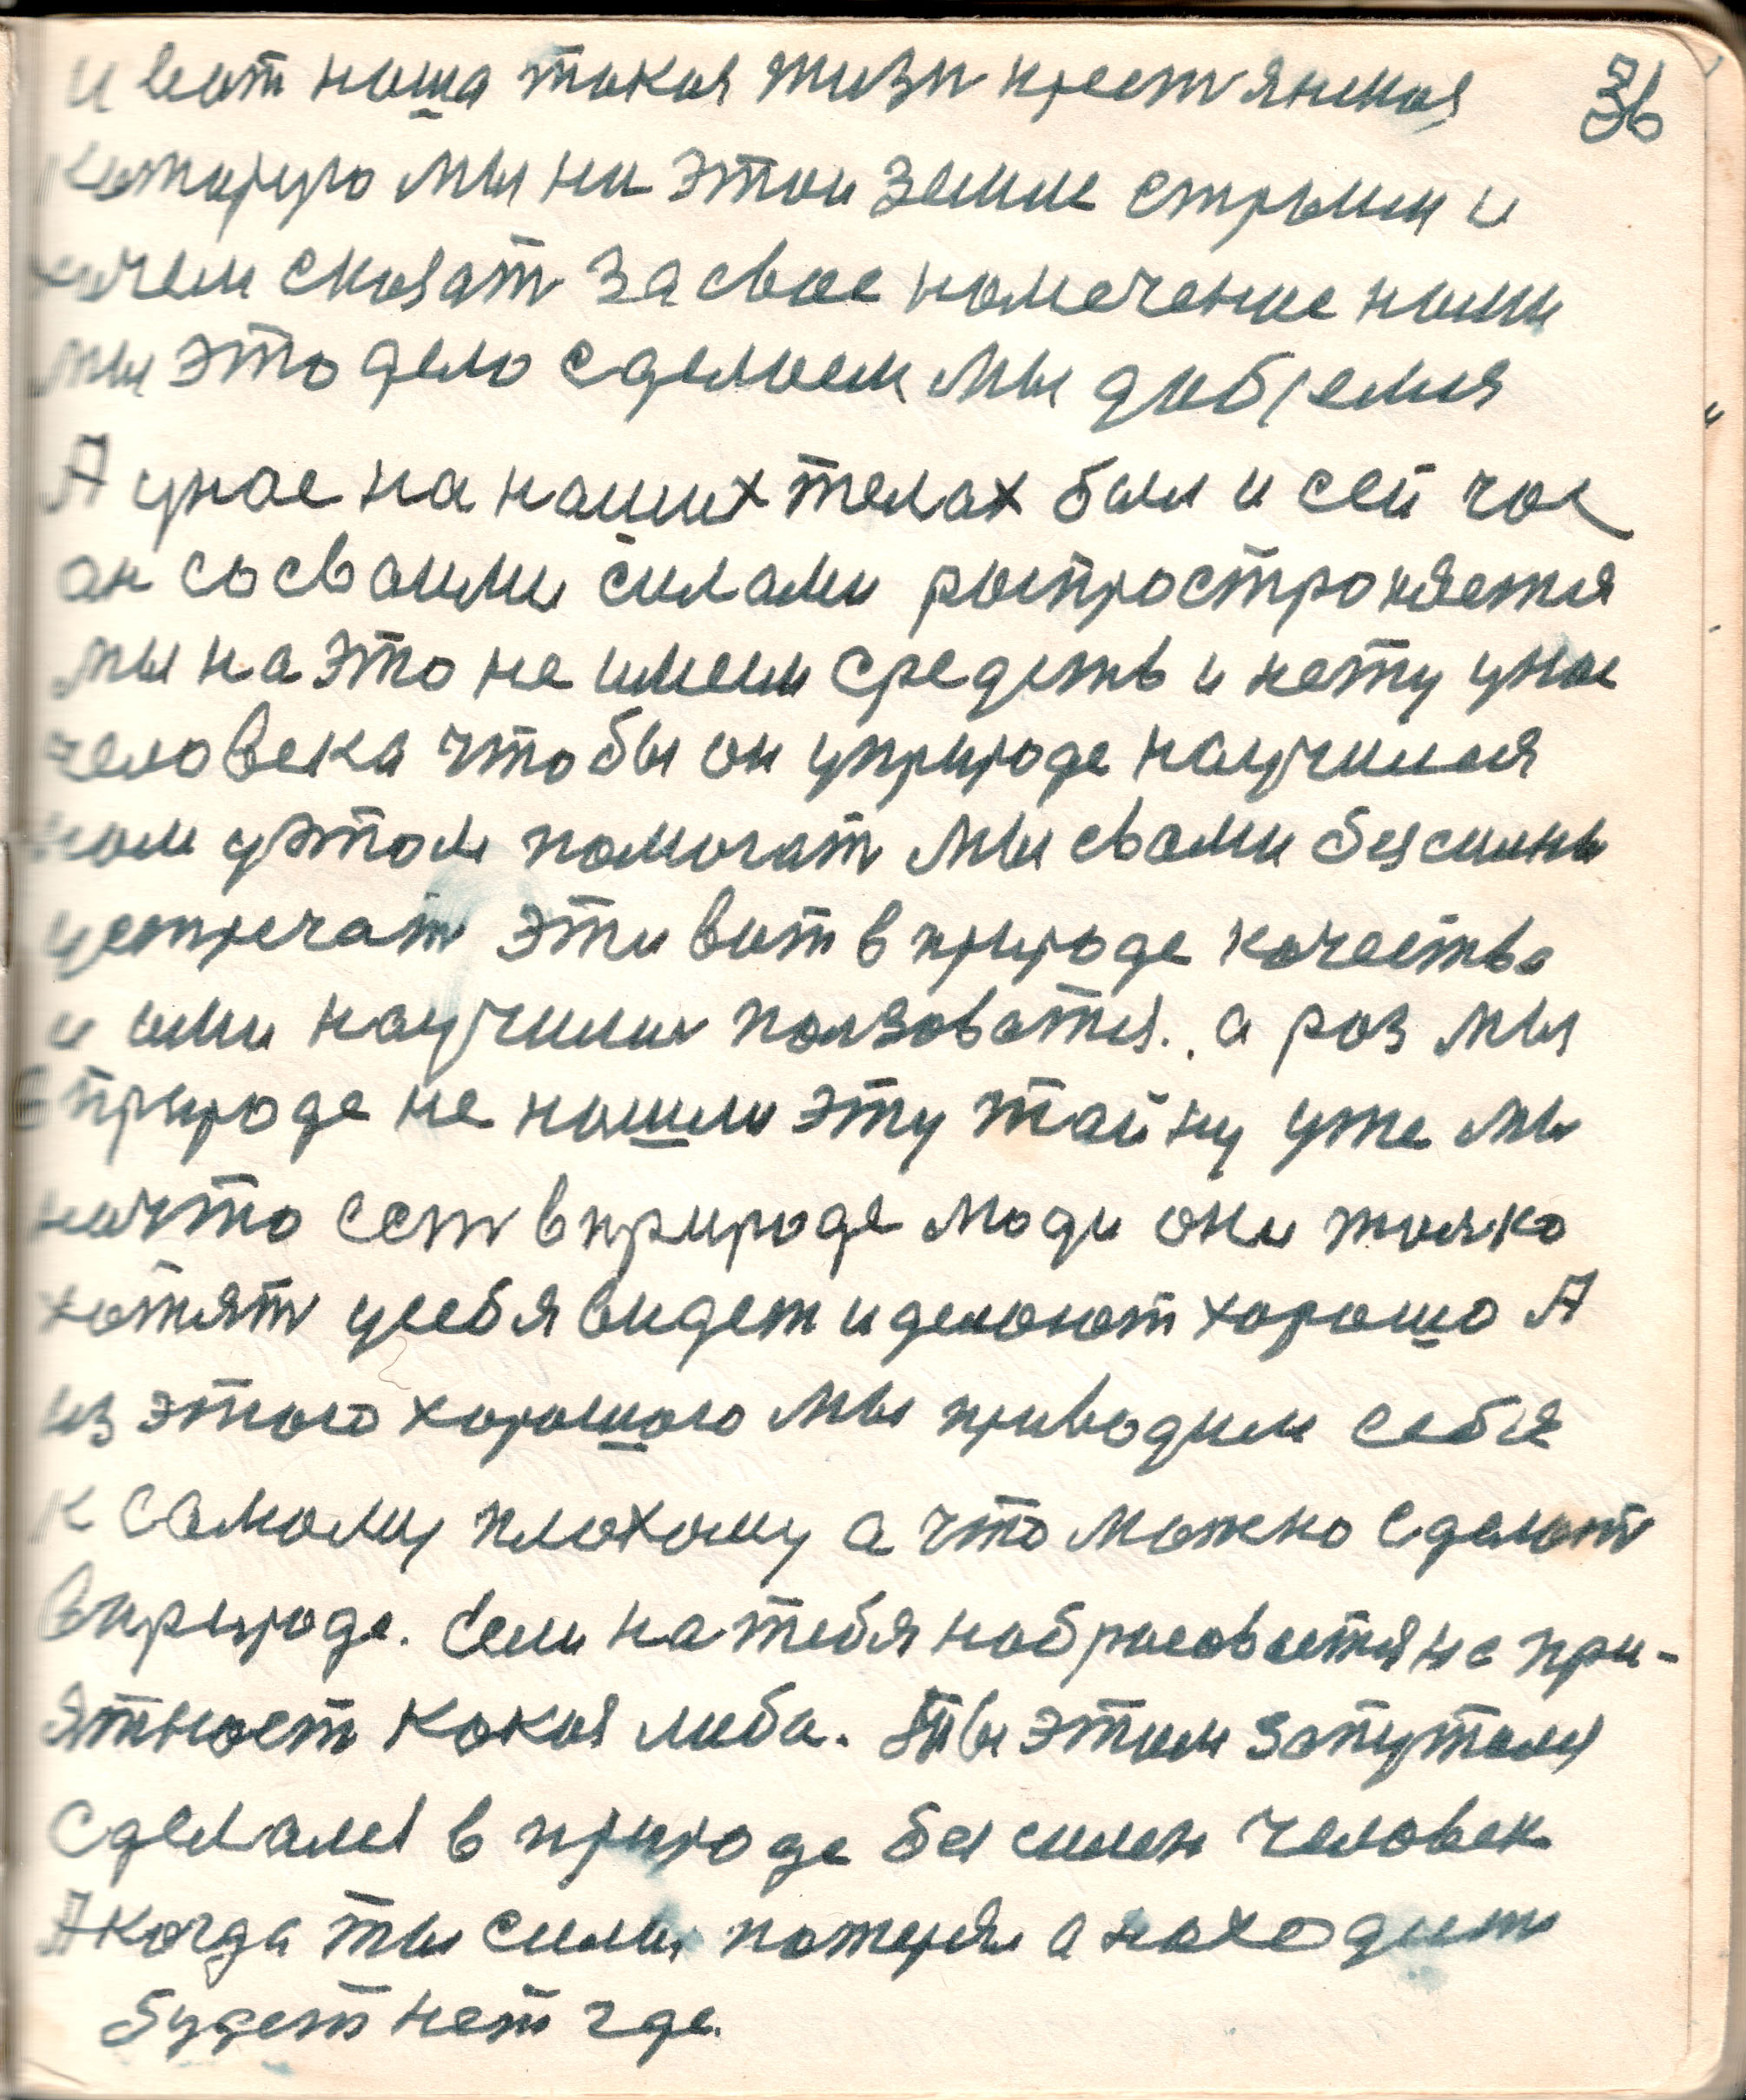 и вот наша такая жизн крестянская 36
которую мы на этои земле строим и
хочем сказат за свое намечение наши
мы это дело сделоем мы добемся
А унас на наших телах боли и сей час
он со сваими силами распространяется
мы на это не имеем средств и нету унас
человека чтобы он уприроде научился
нам уэтом помогат мы свами безсилны
устречат эти вот в природе качества
и ими научились ползоватся. а раз мы
в природе не нашли эту тайну уже мы
начто сест в природе люди они толко
хотят усебя видет и делоют хорошо А
из этого хорошого мы приводим себя
к самому плохому а что можно сделат
вприроде. Если на тебя набрасовается не при-
ятност какая либа. Ты этим запутался
сделался в природе безсилен человек
А когда ты силы потерял а находит
будет нет где.